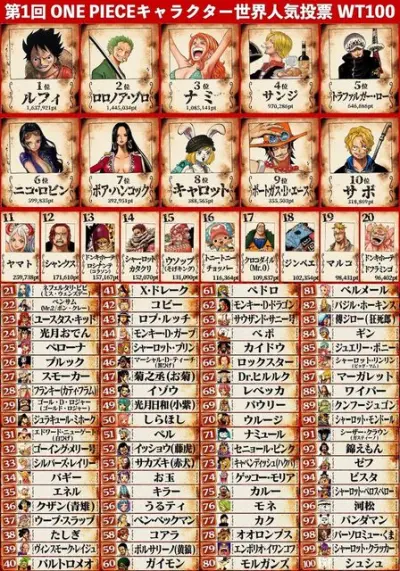 第1回 ONE PIECEキャラクター世界人気投票 WT100
1位
ルフィ
1,637,921pt
2位
ロロノア・ゾロ
1,445,034pt
3位
ナミ
1,085,141pt
4位
サンジ
970,286pt
5位
トラファルガー・ロー
6位
ニコ・ロビン
7位
ボア・ハンコック
8位
キャロット
388,565pt
9位
ポートガス・D・エース
355,503pt
10位
サボ
11
ヤマト
259,738pt
12
シャンクス
171,610pt
13
ドンキホーテ・
ロシナンテ
(コラソン)
14
シャーロット・
カタクリ
152,070pt
15
ウソップ
(そげキング)
131,090pt
16
トニートニー・
チョッパー
116,364pt
17
クロコダイル
(Mr.0)
109,837pt
18
ジンベエ
102,354pt
19
マルコ
98,411pt
20
ドンキホーテ・
ドフラミンゴ
96,402pt
21 ネフェルタリ・ビビ
(ミス・ウェンズデー)
22 ベンサム
(Mr.2/ボン・クレー)
23 ユースタス・キッド
24 光月おでん
25 ペローナ
26 ブルック
27 スモーカー
28 フランキー(カティ・フラム)
29 ゴール・D・ロジャー
(ゴールド・ロジャー)
30 ジュラキュール・ミホーク
31 エドワード・ニューゲート
(白ひげ)
32 ゴーイング・メリー号
33 シルバーズ・レイリー
34 バギー
35 エネル
36 クザン(青雉)
37 ウープ・スラップ
38 たしぎ
39 ヴィンスモーク・レイジュ
40 バルトロメオ
41 X・ドレーク
42 コビー
43 ロブ・ルッチ
44 モンキー・D・ガープ
45 シャーロット・プリン
46 マーシャル・D・ティーチ
(黒ひげ)
47 菊之丞(お菊)
48 イゾウ
49 光月日和(小紫)
50 しらほし
51 ベル
52 イッショウ(藤虎)
53 サカズキ(赤犬)
54 お玉
55 キラー
56 うるティ
57 ベン・ベックマン
58 コアラ
59 ボルサリーノ(黄猿)
60 ガイモン
61 ペドロ
62 モンキー・D・ドラゴン
63 サウザンド・サニー号
64 ベポ
65 カイドウ
66 ロックスター
67 Dr.ヒルルク
68 レベッカ
69 パウリー
70 ウルージ
71 ナミュール
72 セニョール・ピンク
73 キャベンディッシュ(ハクバ)
74 ゲッコー・モリア
75 カルー
76 モネ
77 カク
78 オオロンブス
79 エンポリオ・イワンコフ
80 モルガンズ
81 ベルメール
82 バジル・ホーキンス
83 傳ジロー(狂死郎)
84 ギン
85 ジュエリー・ボニー
86 シャーロット・リンリン
(ビッグ・マム)
87 マーガレット
88 ワイパー
89 クンフージュゴン
90 シャーロット・モンドール
91 シーザー・クラウン
92 錦えもん
93 ゼフ
94 ビスタ
95 シャーロット・ペロスペロー
96 河松
97 パンダマン
98 バーソロミュー・くま
99 シャーロット・クラッカー
100 シュシュ